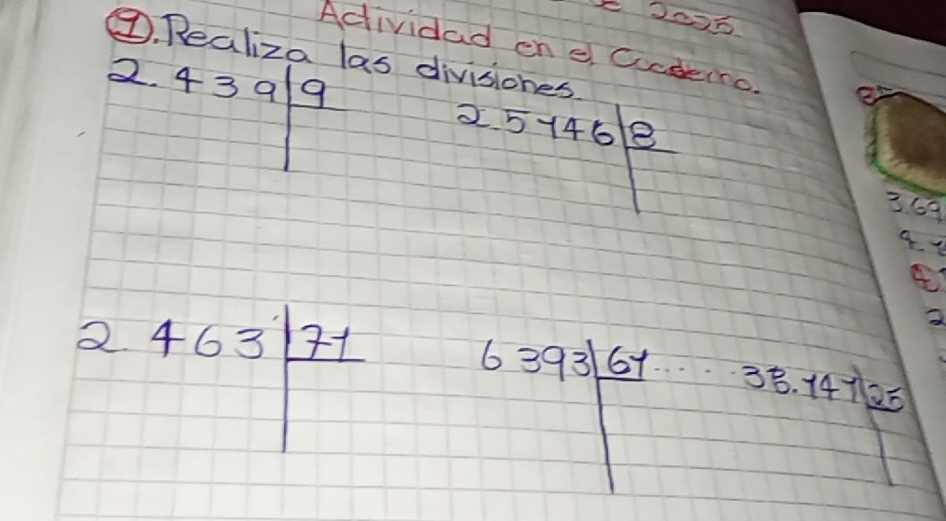 2025
Actividad en el Cuaderno.
①. Realiza las divisiones.
2.439|9
2.5146|8
2 463|71
6393|61
38.141|25
3.69